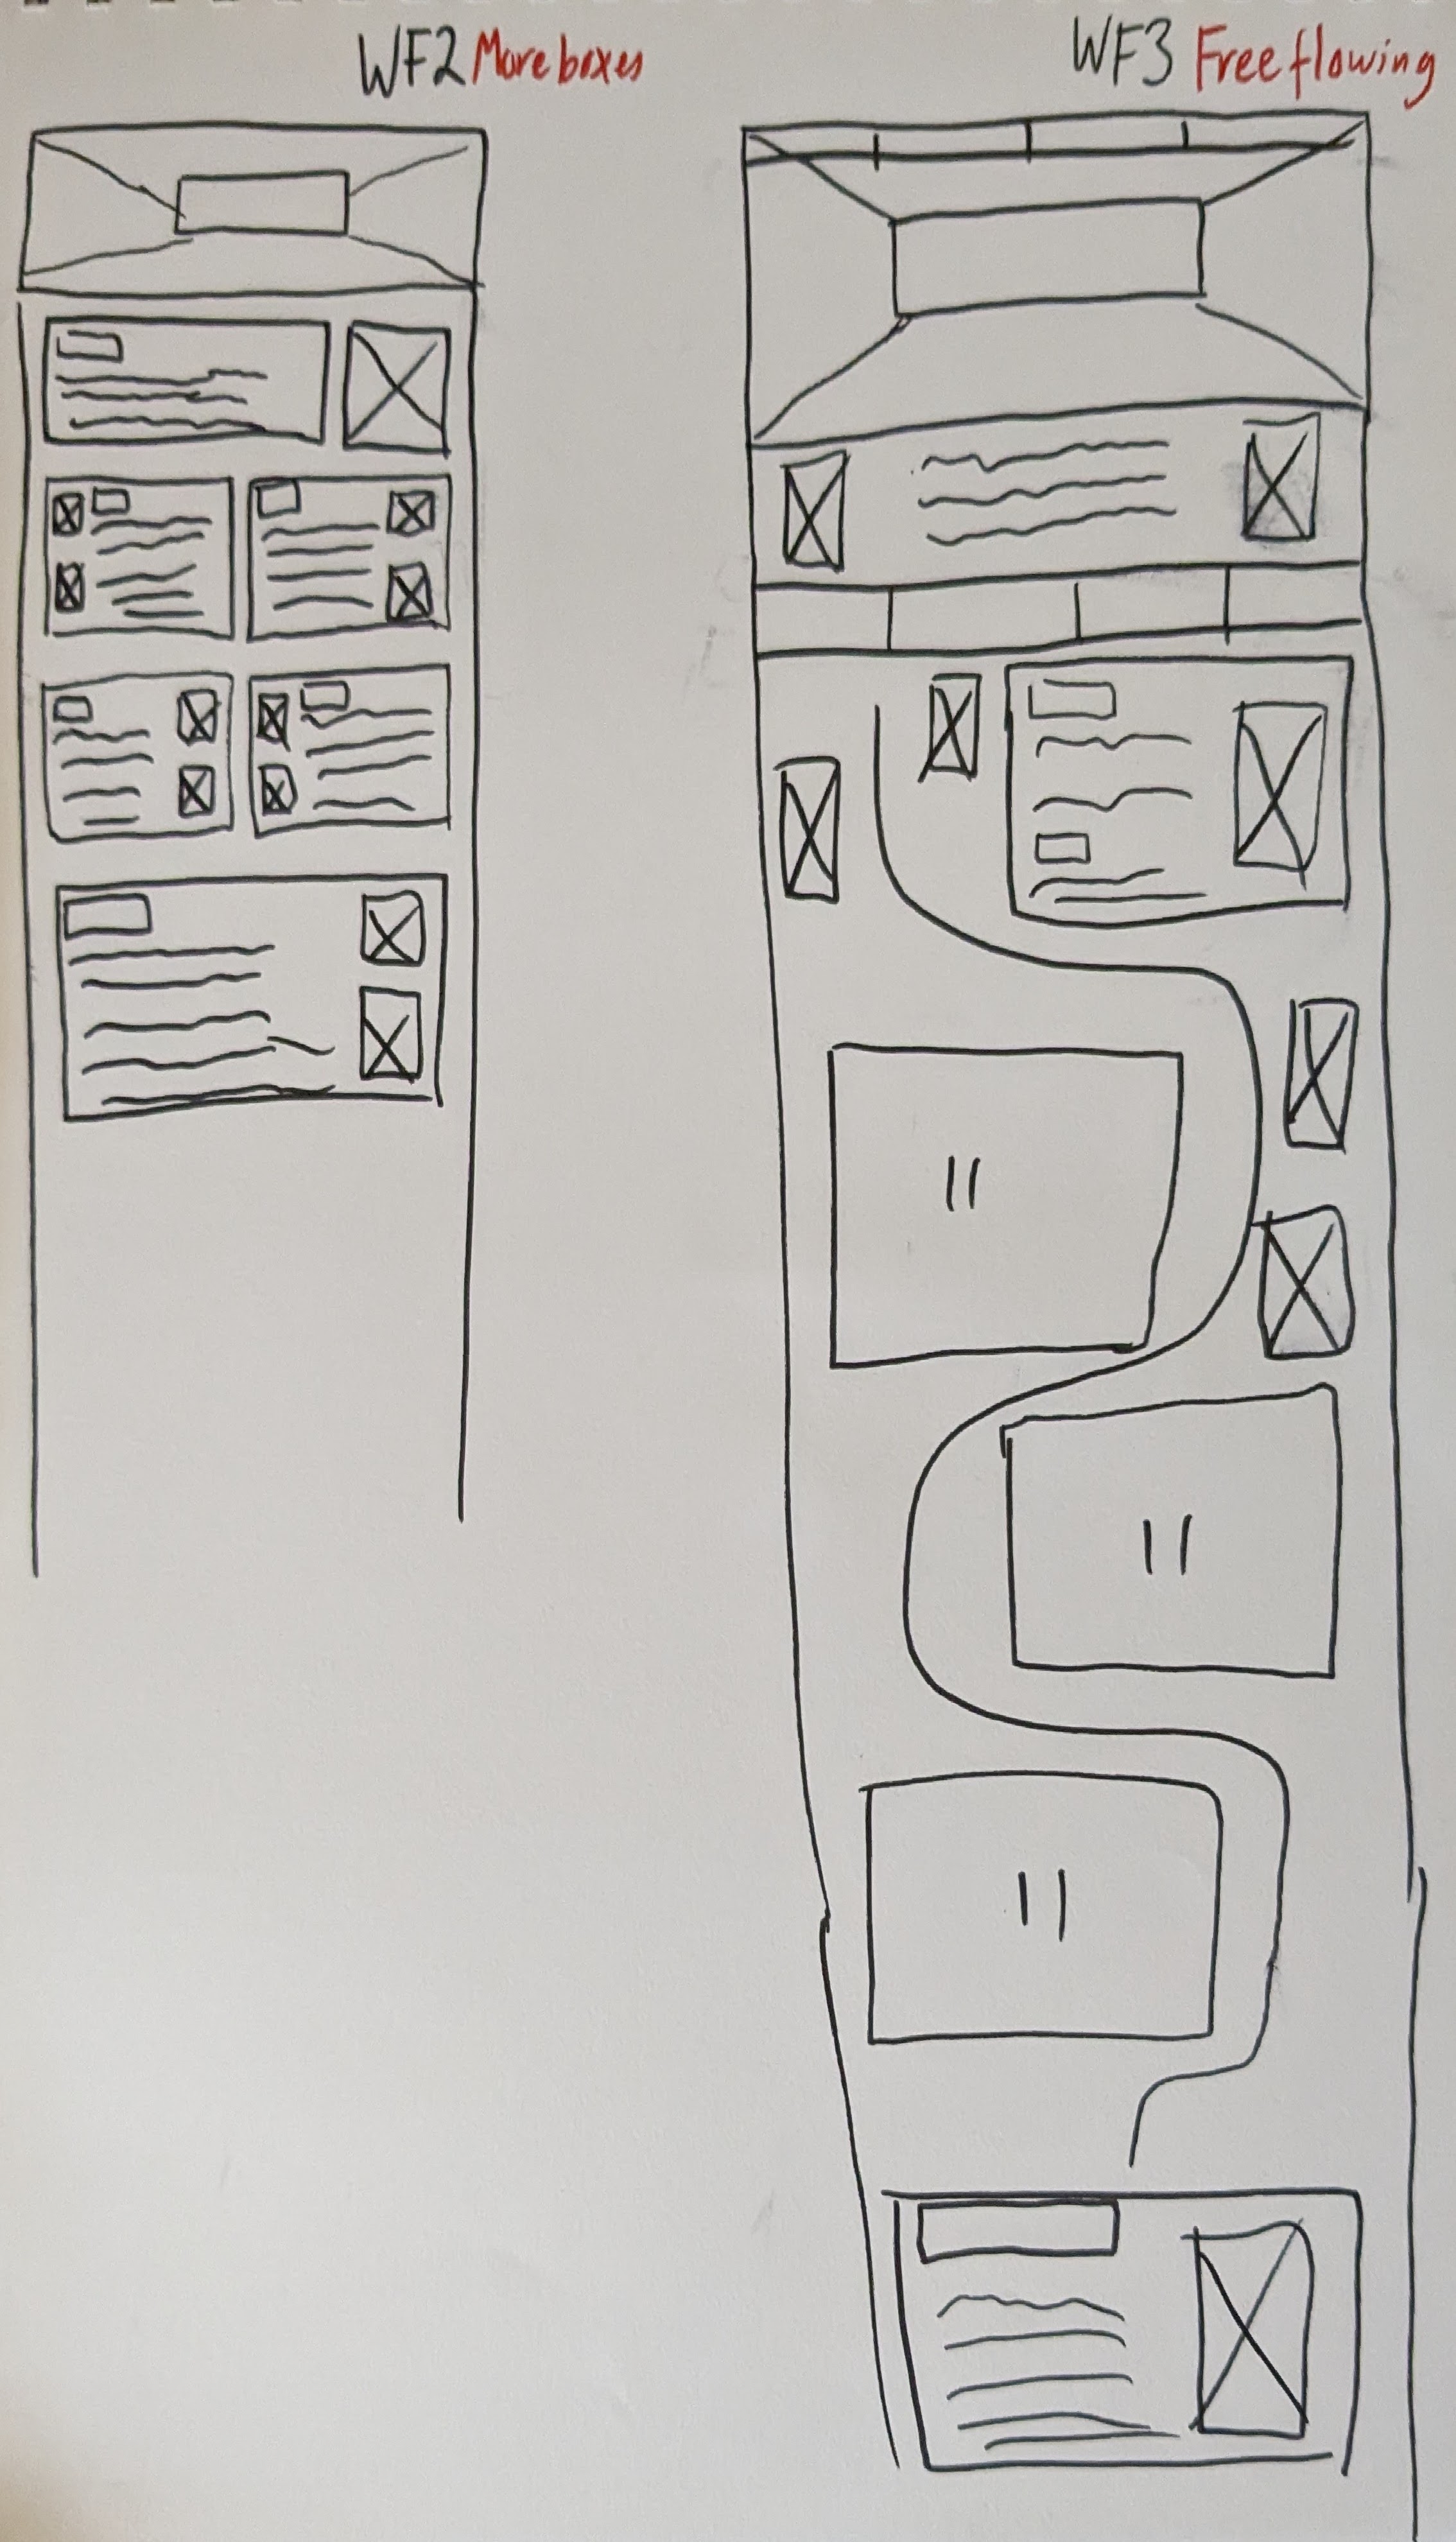 WF2 More boxes
WF3 Free flowing
11
11
11